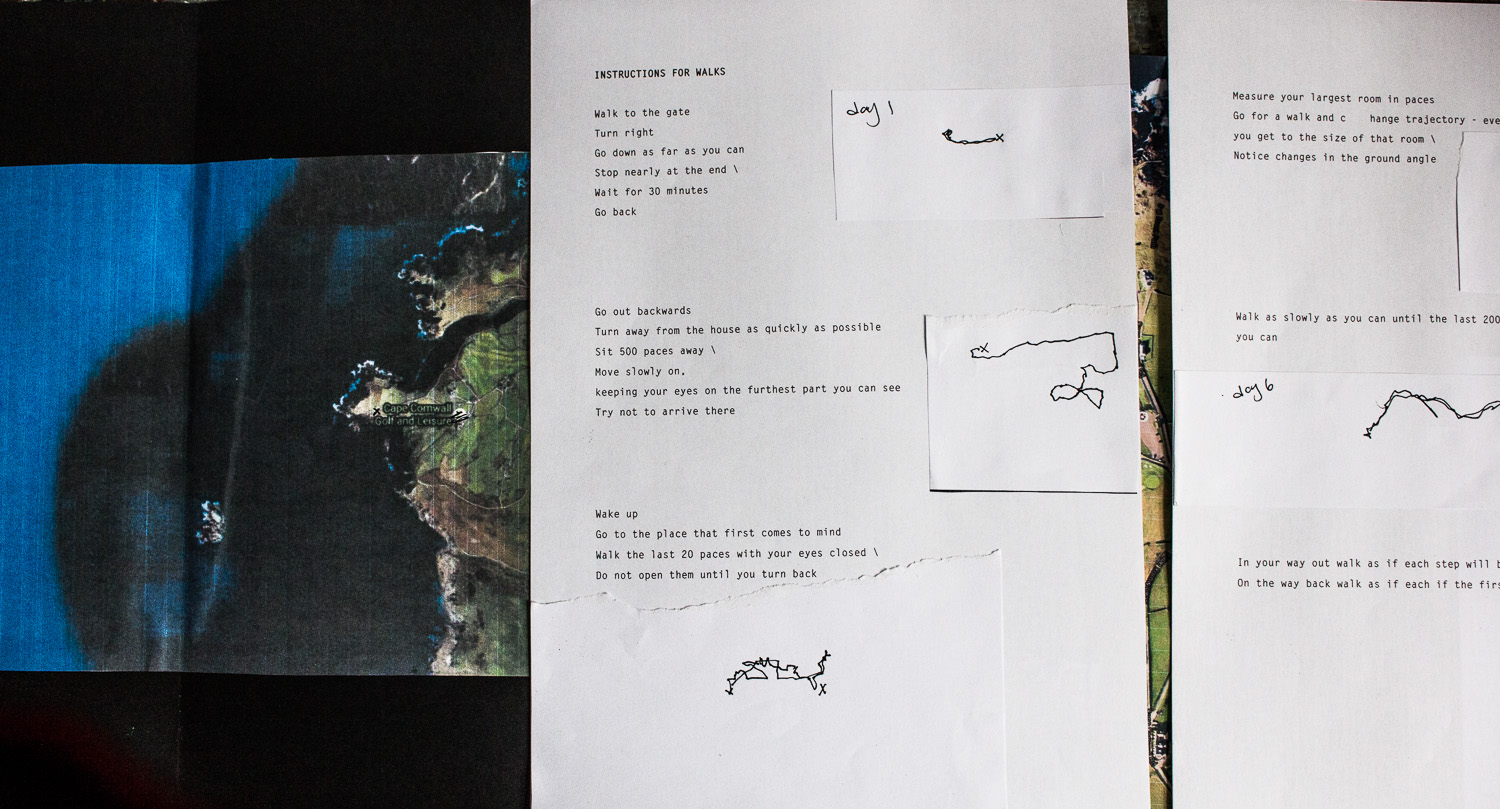 Cape Cornwall
Golf and Leisure
INSTRUCTIONS FOR WALKS
Walk to the gate
Turn right
Go down as far as you can
Stop nearly at the end \
Wait for 30 minutes
Go back
day 1
Go out backwards
Turn away from the house as quickly as possible
Sit 500 paces away \
Move slowly on,
keeping your eyes on the furthest part you can see
Try not to arrive there
Wake up
Go to the place that first comes to mind
Walk the last 20 paces with your eyes closed \
Do not open them until you turn back
Measure your largest room in paces
Go for a walk and c hange trajectory - eve
you get to the size of that room \
Notice changes in the ground angle
Walk as slowly as you can until the last 200
you can
day 6
In your way out walk as if each step will b
On the way back walk as if each if the firs